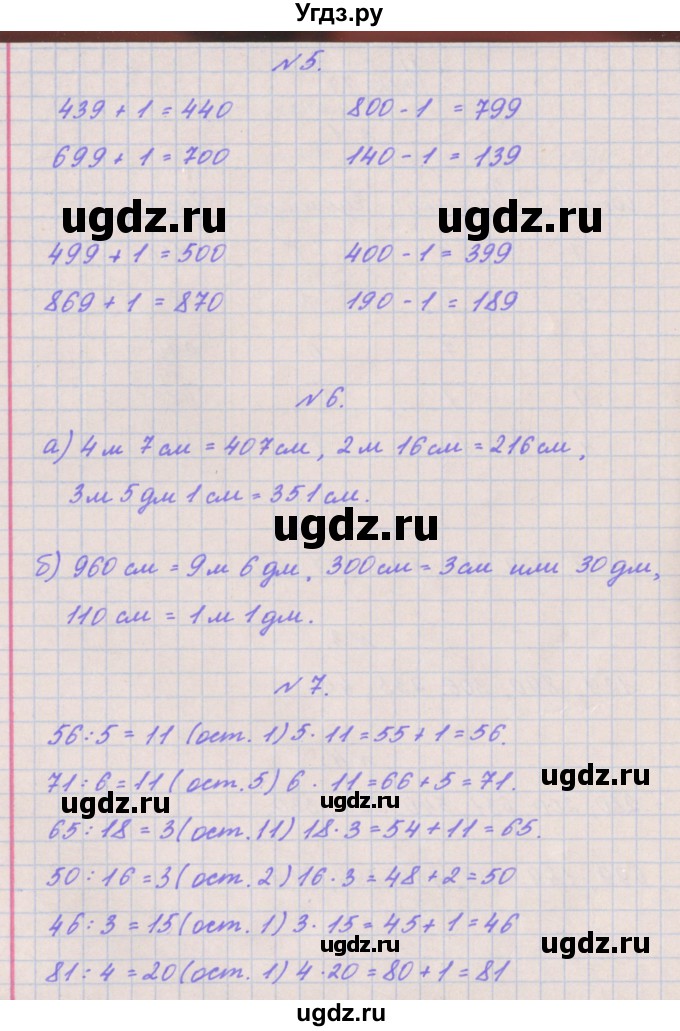 Угдз.ру
№5.
439 + 1 = 440 800 - 1 = 799
699 + 1 = 700 140 - 1 = 139
ugdz.ru ugdz.ru
499 + 1 = 500 400 - 1 = 399
869 + 1 = 870 190 - 1 = 189
№6.
а) 4 м 7 см = 407 см, 2 м 16 см = 216 см,
3 м 5 дм 1 см = 351 см.
ugdz.ru
б) 960 см = 9 м 6 дм, 300 см = 3 см или 30 дм,
110 см = 1 м 1 дм.
№7.
56 : 5 = 11 (ост. 1) 5 · 11 = 55 + 1 = 56.
71 : 6 = 11 (ост. 5) 6 · 11 = 66 + 5 = 71.
ugdz.ru
ugdz.ru ugdz.ru
65 : 18 = 3 (ост. 11) 18 · 3 = 54 + 11 = 65.
50 : 16 = 3 (ост. 2) 16 · 3 = 48 + 2 = 50
46 : 3 = 15 (ост. 1) 3 · 15 = 45 + 1 = 46
ugdz.ru ugdz.ru
81 : 4 = 20 (ост. 1) 4 · 20 = 80 + 1 = 81
ugdz.ru